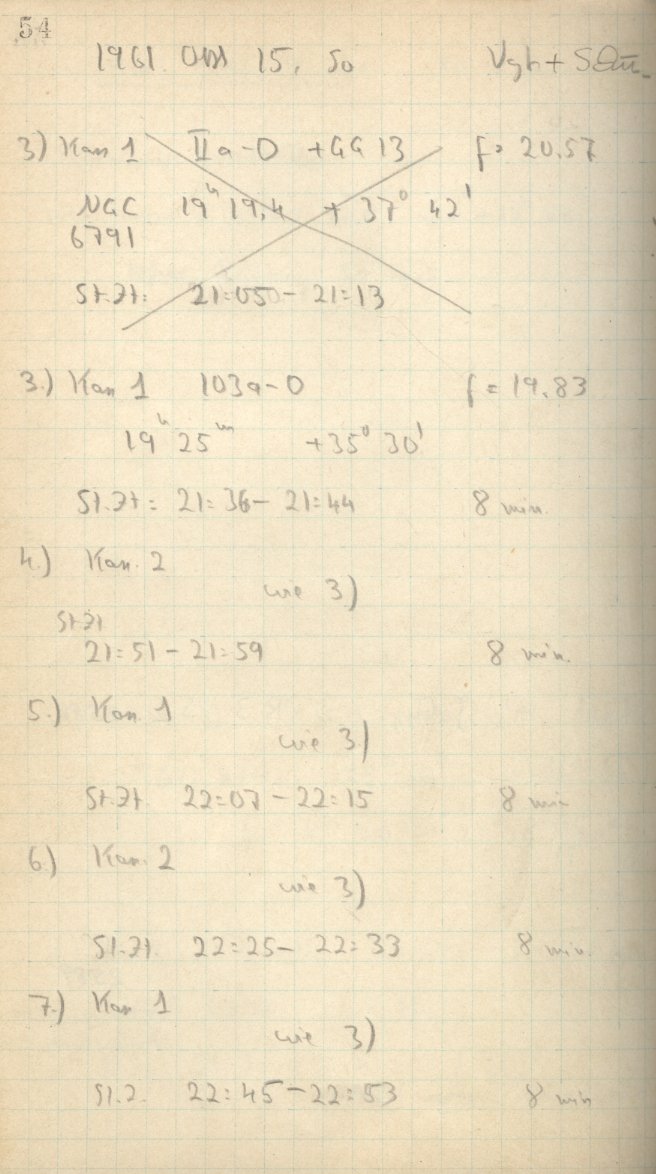 54
1961 Okt 15, So Vgt +
3) Kas 1 IIa-O + GG 13 f = 20.57
NGC 19ʰ 19,4 + 37° 42'
6791
St.Zt: 21:050 - 21:13
3.) Kas 1 103a-O f = 19.83
19ʰ 25ᵐ +35° 30'
St.Zt: 21:36 - 21:44 8 min.
4.) Kas. 2
wie 3)
St.Zt
21:51 - 21:59 8 min.
5.) Kas. 1
wie 3)
St.Zt. 22:07 - 22:15 8 min
6.) Kas. 2
wie 3)
St.Zt. 22:25 - 22:33 8 min.
7.) Kas 1
wie 3)
St.Z. 22:45 - 22:53 8 min